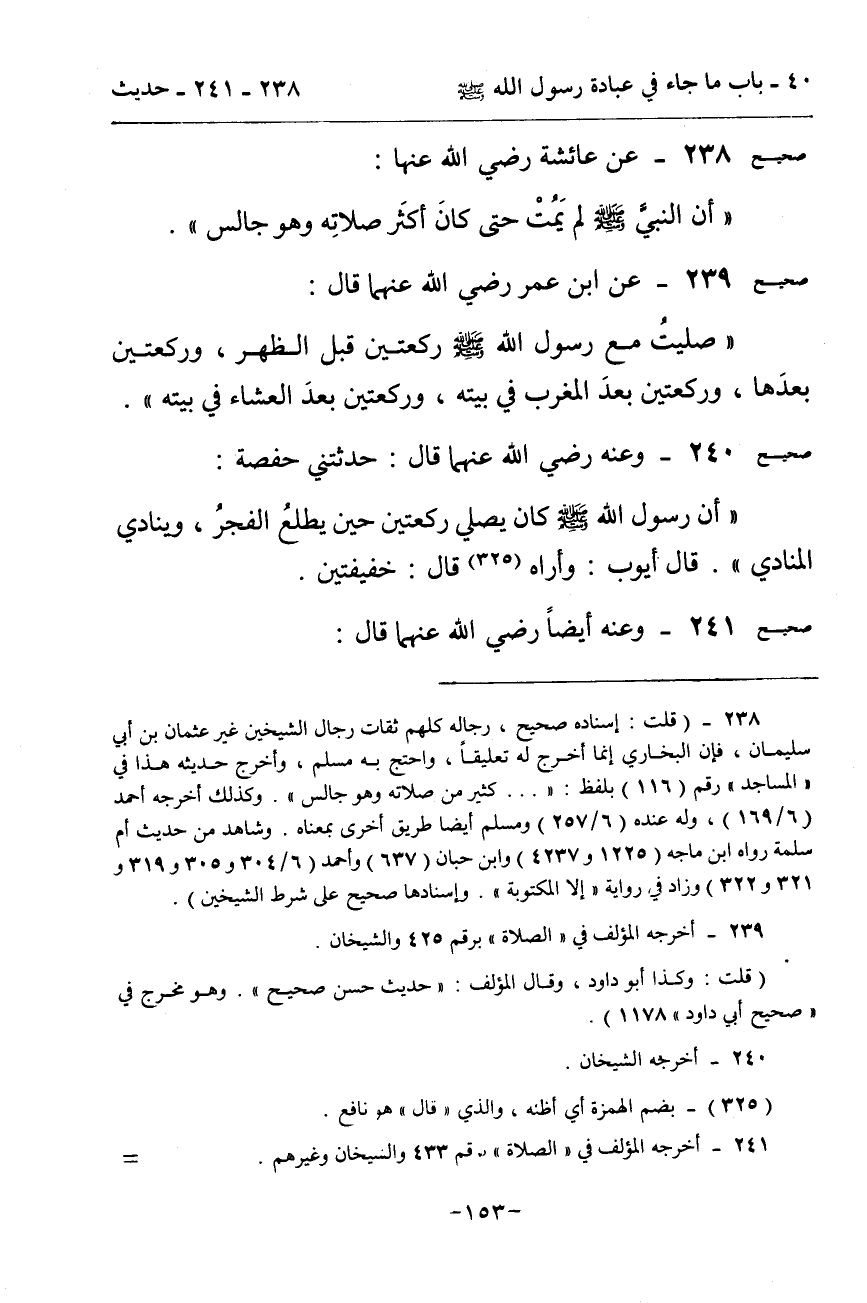 ٤٠ ـ باب ما جاء في عبادة رسول الله ﷺ ٢٣٨ ـ ٢٤١ ـ حديث
صحيح ٢٣٨ ـ عن عائشة رضي الله عنها :
« أن النبيَّ ﷺ لم يَمُتْ حتى كانَ أكثَر صلاتِه وهو جالس » .
صحيح ٢٣٩ ـ عن ابن عمر رضي الله عنهما قال :
« صليتُ مع رسول الله ﷺ ركعتين قبل الظهر ، وركعتين
بعدَها ، وركعتين بعدَ المغرب في بيته ، وركعتين بعدَ العشاء في بيته » .
صحيح ٢٤٠ ـ وعنه رضي الله عنهما قال : حدثتني حفصة :
« أن رسول الله ﷺ كان يصلي ركعتين حين يطلعُ الفجرُ ، وينادي
المنادي » . قال أيوب : وأراه (٣٢٥) قال : خفيفتين .
صحيح ٢٤١ ـ وعنه أيضاً رضي الله عنهما قال :
٢٣٨ ـ ( قلت : إسناده صحيح ، رجاله كلهم ثقات رجال الشيخين غير عثمان بن أبي
سليمان ، فإن البخاري إنما أخرج له تعليقاً ، واحتج به مسلم ، وأخرج حديثه هذا في
« المساجد » رقم ( ١١٦ ) بلفظ : « ... كثير من صلاته وهو جالس » . وكذلك أخرجه أحمد
( ٦/ ١٦٩ ) ، وله عنده ( ٦/ ٢٥٧ ) ومسلم أيضا طريق أخرى بمعناه . وشاهد من حديث أم
سلمة رواه ابن ماجه ( ١٢٢٥ و ٤٢٣٧ ) وابن حبان ( ٦٣٧ ) وأحمد ( ٦/ ٣٠٤ و ٣٠٥ و ٣١٩ و
٣٢١ و ٣٢٢ ) وزاد في رواية « إلا المكتوبة » . وإسنادها صحيح على شرط الشيخين ) .
٢٣٩ ـ أخرجه المؤلف في « الصلاة » برقم ٤٢٥ والشيخان .
( قلت : وكذا أبو داود ، وقال المؤلف : « حديث حسن صحيح » . وهو مخرج في
« صحيح أبي داود » ١١٧٨ ) .
٢٤٠ ـ أخرجه الشيخان .
( ٣٢٥ ) ـ بضم الهمزة أي أظنه ، والذي « قال » هو نافع .
٢٤١ ـ أخرجه المؤلف في « الصلاة » برقم ٤٣٣ والشيخان وغيرهم . =
-١٥٣-